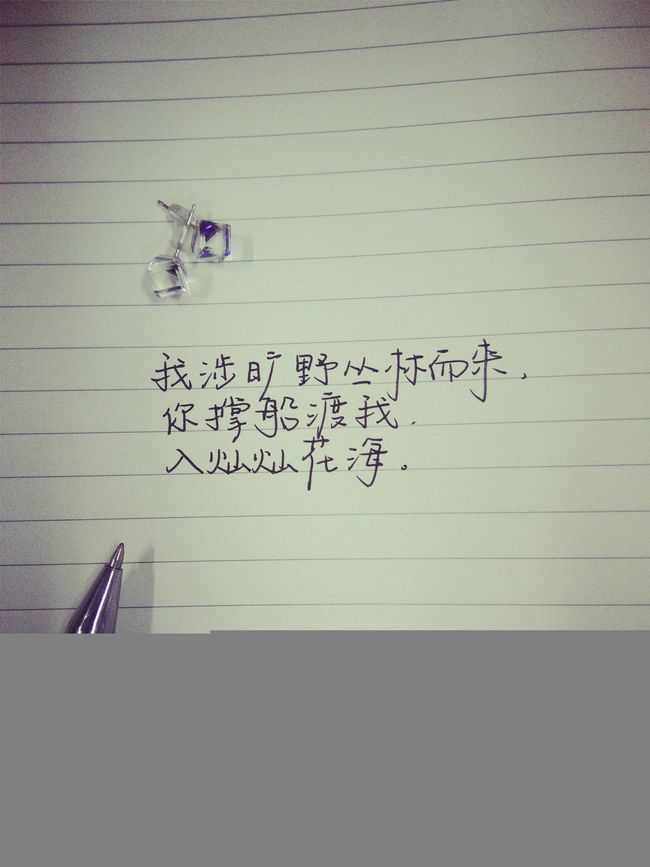 我涉旷野丛林而来，
你撑船渡我.
入灿灿花海。